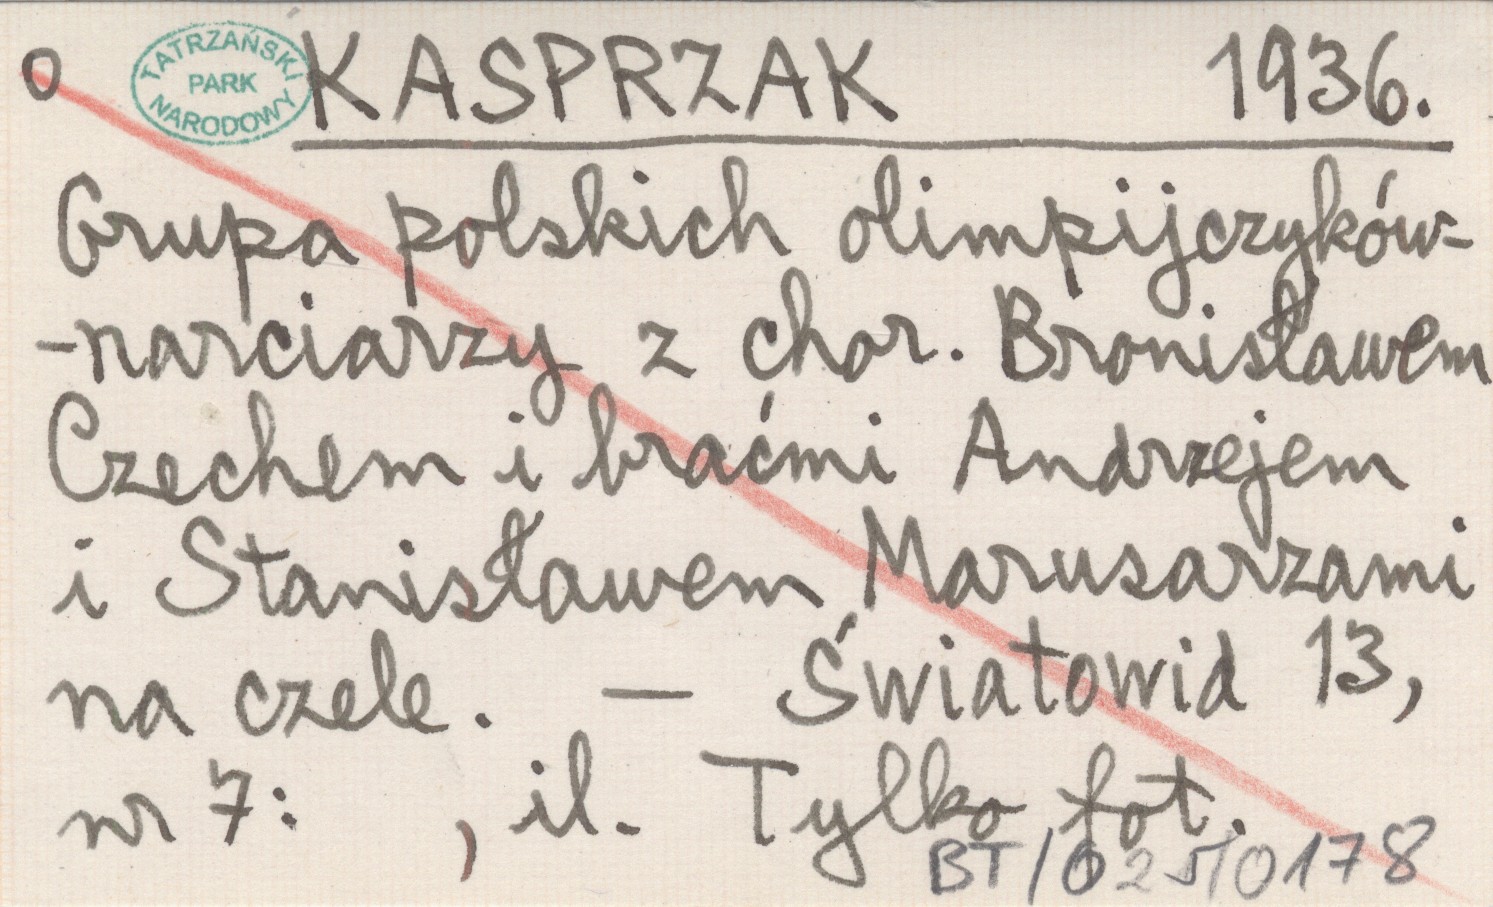 O
TATRZAŃSKI
PARK
NARODOWY
KASPRZAK 1936.
Grupa polskich olimpijczyków-
-narciarzy z chor. Bronisławem
Czechem i braćmi Andrzejem
i Stanisławem Marusarzami
na czele. — Światowid 13,
nr 7: , il. Tylko fot.
BT/025/0178